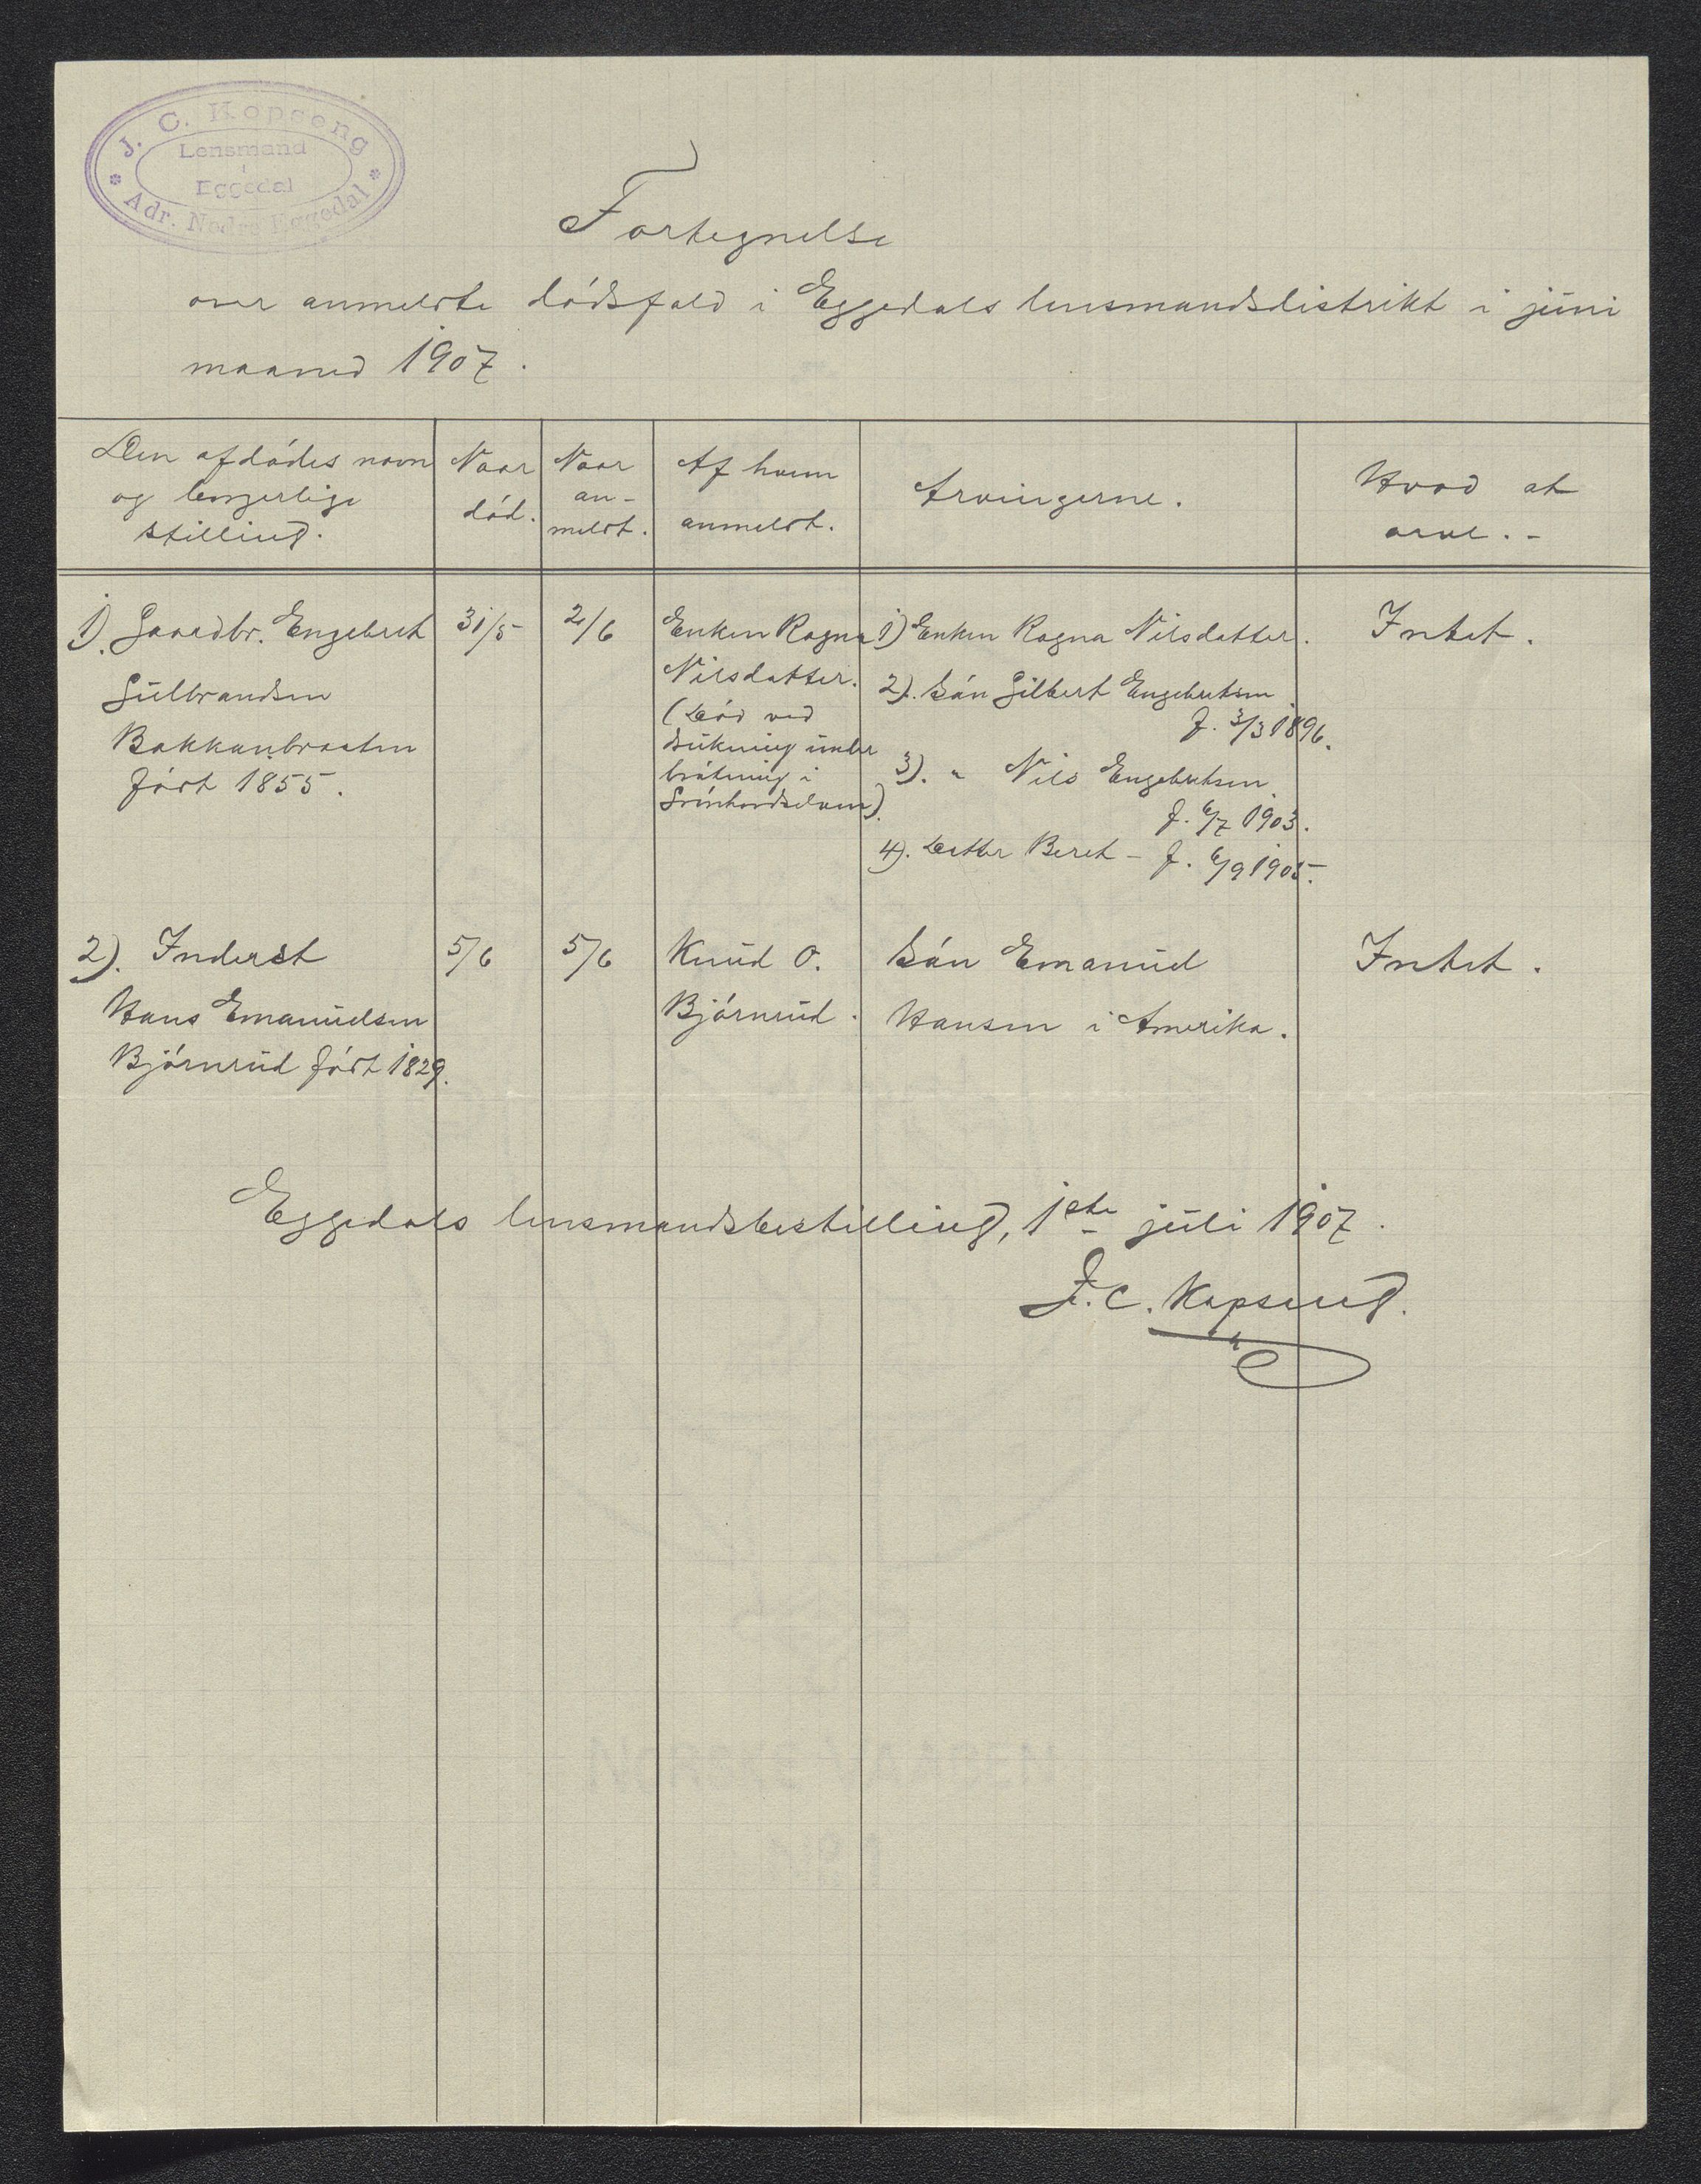 J. C. Kopseng
Lensmand
i
Eggedal
Adr. Nedre Eggedal
Fortegnelse
over anmeldte dödsfald i Eggedals lensmandsdistrikt i juni
maaned 1907.
Den afdödes navn
og borgerlige
stilling.
Naar
död.
Naar
an-
meldt.
Af hvem
anmeldt.
Arvingerne.
Hvad at
arve. -
1). Gaardbr. Engebret
Gulbrandsen
Bakkenbraaten
födt 1855.
31/5
2/6
Enken Ragna
Nilsdatter.
(Död ved
drukning under
brötning i
1) Enken Ragna Nilsdatter.
2). Sön Gilbert Engebretsen
f. 3/3 1896.
3). " Nils Engebretsen
f. 6/7 1903.
4). Datter Beret - f. 6/9 1905.
Intet.
2). Inderst
Hans Emanuelsen
Björnrud födt 1829.
5/6
5/6
Knud O.
Björnrud.
Sön Emanuel
Hansen i Amerika.
Intet.
Eggedals lensmandsbestilling, 1ste juli 1907.
J. C. Kopseng.